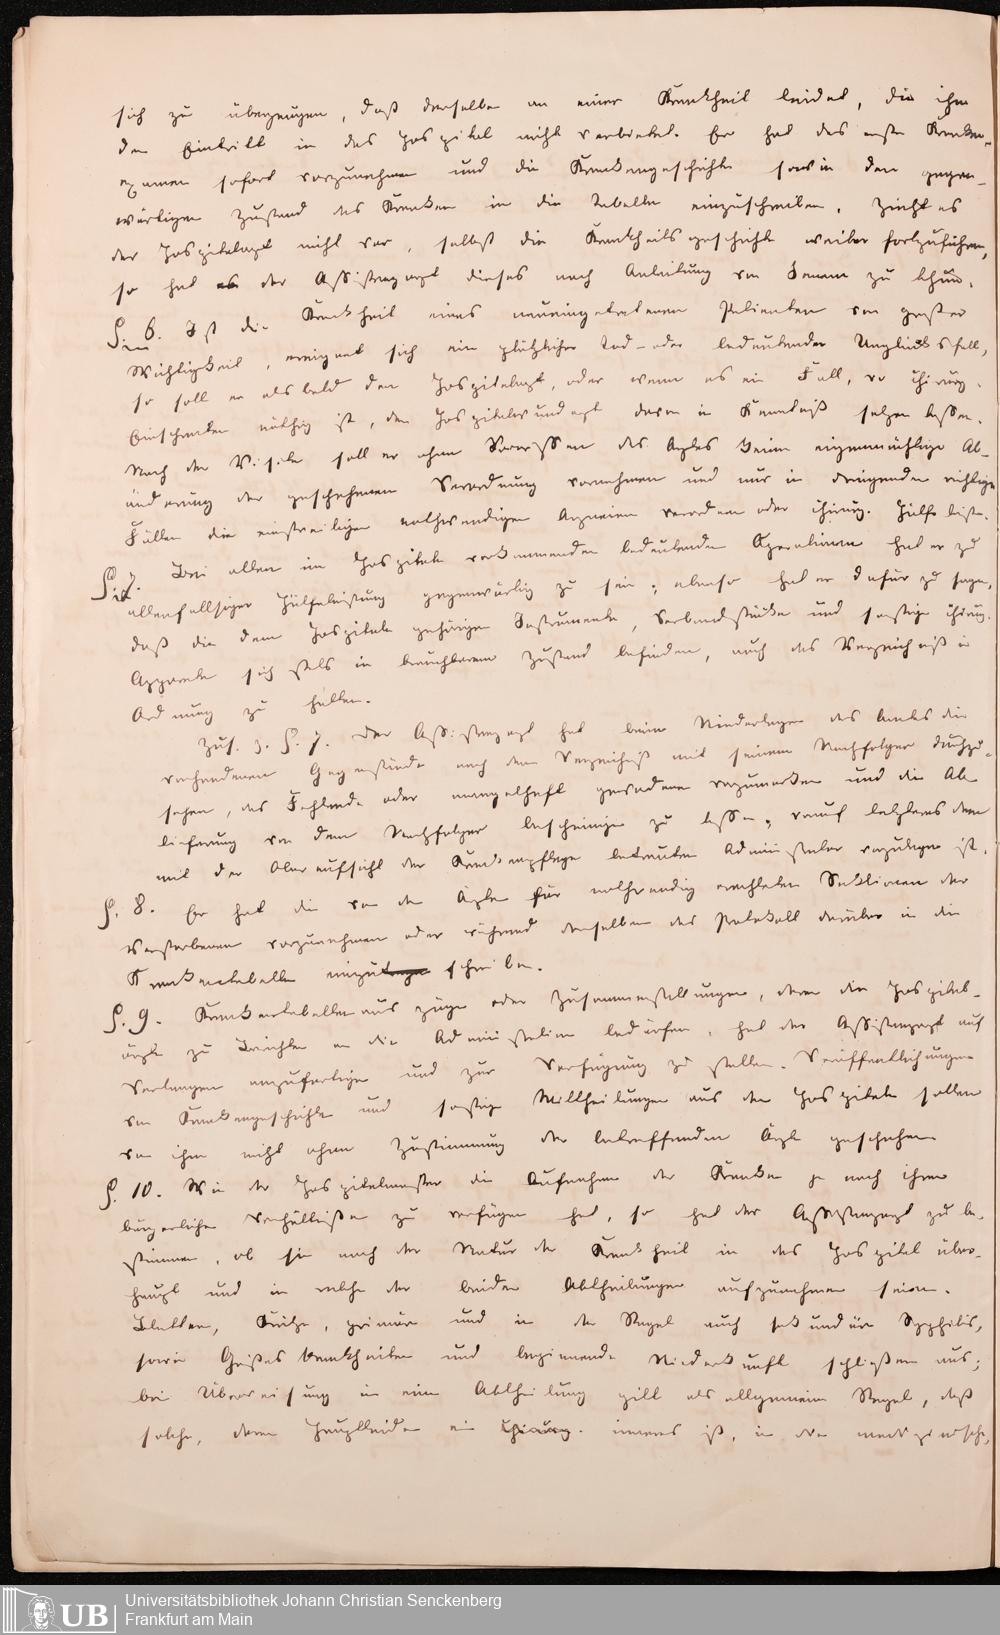 sich zu überzeugen, daß derselbe an einer Krankheit leidet, die ihm
den Eintritt in das Hospital nicht verbietet. Er hat das erste Kranken-
examen sofort vorzunehmen und die Krankengeschichte sowie den gegen-
wärtigen Zustand des Kranken in die Tabelle einzuschreiben. Zieht es
der Hospitalarzt nicht vor, selbst die Krankheitsgeschichte weiter fortzuführen,
so hat der Assistenzarzt dieses nach Anleitung von Jenem zu thun.
§. 6. Ist die Krankheit eines neueingetretenen Patienten von großer
Wichtigkeit, ereignet sich ein plötzlicher Tod- oder bedeutender Unglücksfall,
so soll er alsbald den Hospitalarzt, oder wenn es ein Fall, wo chirurg.
Einschreiten nöthig ist, den Hospitalwundarzt davon in Kenntniß setzen lassen.
Nach der Visite soll er ohne Vorwissen des Arztes keine eigenmächtige Ab-
änderung der geschehenen Verordnung vornehmen und nur in dringenden
Fällen die einstweiligen nothwendigen Arzneien verordnen oder chirurg. Hülfe leisten.
§. 7. Bei allen im Hospitale vorkommenden bedeutenden Operationen hat er zu
allenfallsiger Hülfeleistung gegenwärtig zu sein; ebenso hat er dafür zu sorgen,
daß die dem Hospitale gehörigen Instrumente, Verbandstücke und sonstige chirurg.
Apparate sich stets in brauchbarem Zustand befinden, auch das Verzeichniß in
Ordnung zu halten.
Zus. z. §. 7. Der Assistenzarzt hat beim Niederlegen des Amtes die
vorhandenen Gegenstände nach dem Verzeichniß mit seinem Nachfolger durchzu-
sehen, das Fehlende oder mangelhaft gewordene vorzumerken und die Ab-
lieferung von dem Nachfolger bescheinigen zu lassen, worauf letzteres dem
mit der Oberaufsicht der Krankenpflege betrauten Administrator vorzulegen ist.
§. 8. Er hat die von den Ärzten für nothwendig erachteten Sektionen der
Verstorbenen vorzunehmen oder während derselben das Protokoll darüber in die
Krankentabelle einzuschreiben.
§. 9. Krankentabellenauszüge oder Zusammenstellungen, deren die Hospital-
ärzte zu Berichten an die Administration bedürfen, hat der Assistenzarzt auf
Verlangen anzufertigen und zur Verfügung zu stellen. Veröffentlichungen
von Krankengeschichten und sonstige Mittheilungen aus dem Hospitale sollen
von ihm nicht ohne Zustimmung der betreffenden Ärzte geschehen.
§. 10. Wie der Hospitalmeister die Aufnahme der Kranken je nach ihren
bürgerlichen Verhältnissen zu verfügen hat, so hat der Assistenzarzt zu be-
stimmen, ob sie nach der Natur der Krankheit in das Hospital über-
haupt und in welche der beiden Abtheilungen aufzunehmen seien.
Blattern, Krätze, primäre und in der Regel auch sekundäre Syphilis,
sowie Geisteskrankheiten und beginnende Niederkunft schließen aus;
bei Überweisung in eine Abtheilung gilt als allgemeine Regel, daß
solche, deren Hauptleiden ein inneres ist, in die medizinische,
Universitätsbibliothek Johann Christian Senckenberg
Frankfurt am Main
UB